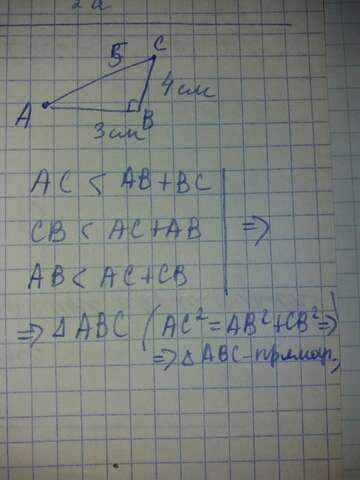 2a
5 C
4см
A B
3см
AC < AB+BC
CB < AC+AB =>
AB < AC+CB
=> △ABC (AC²=AB²+CB² =>
=> △ABC-прямоуг.)